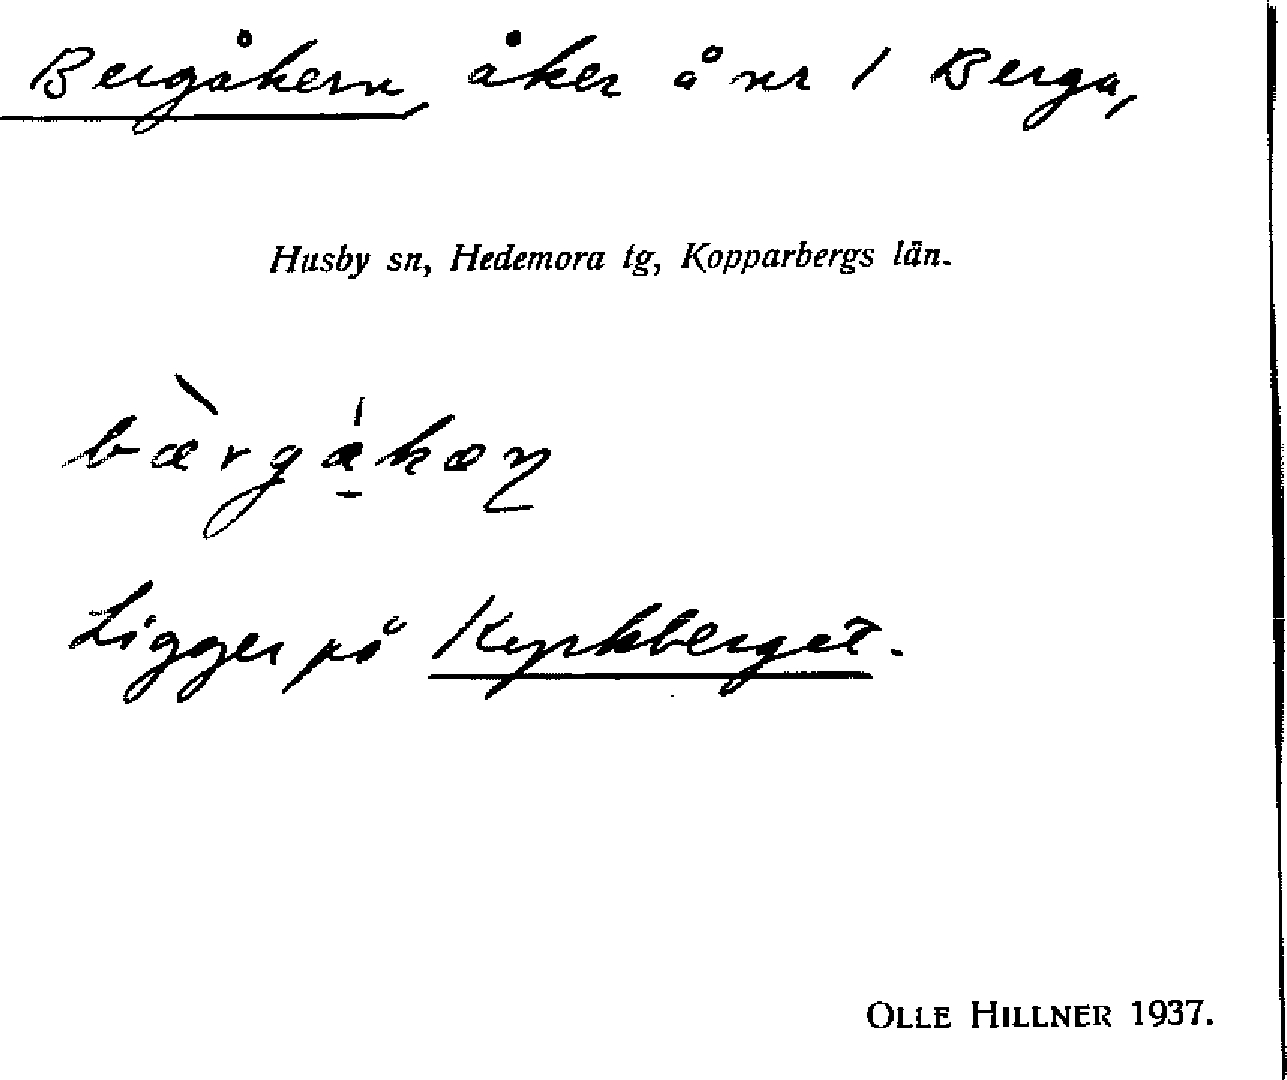 Bergåkern, åker å nr 1 Berga,
Husby sn, Hedemora tg, Kopparbergs län.
Ligger på Kyrkberget.
OLLE HILLNER 1937.